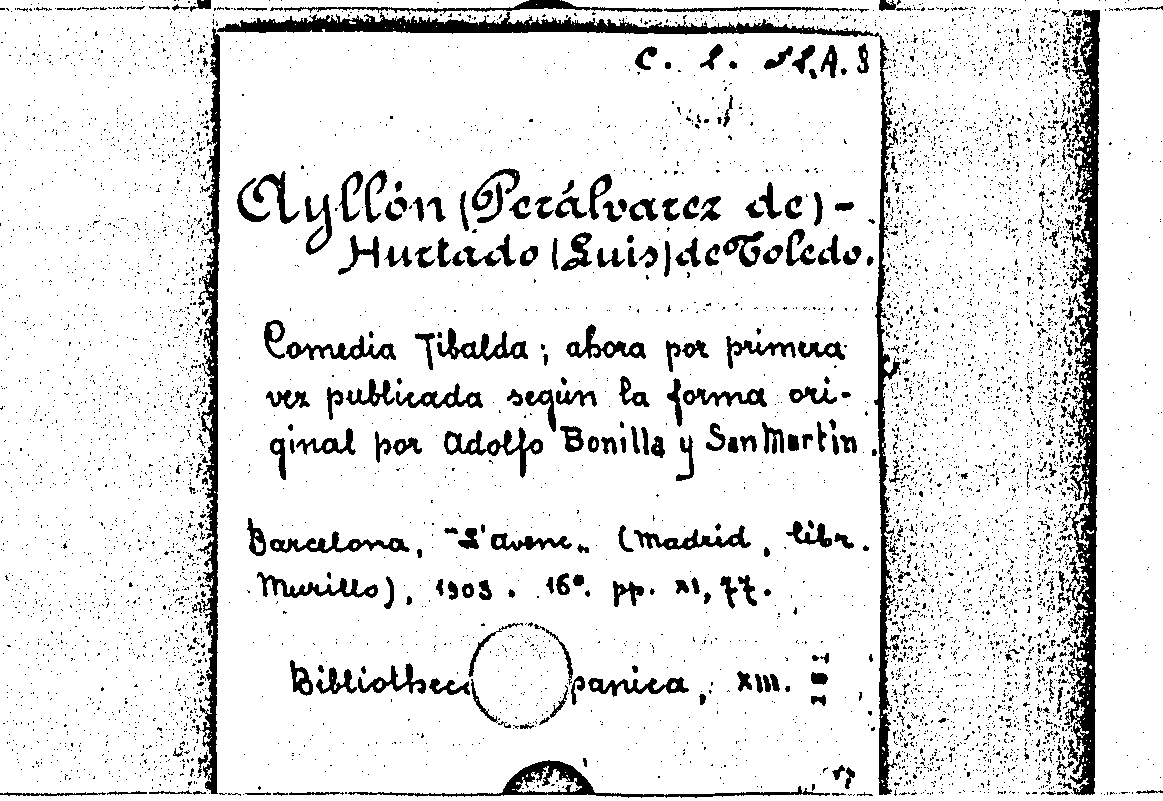 Ayllón (Perálvarez de) -
Hurtado (Luis) de Toledo.
Comedia Tibalda; ahora por primera
vez publicada según la forma ori-
ginal por Adolfo Bonilla y San Martin.
Barcelona, "L'Avenc" (Madrid, libr.
Murillo), 1903. 16º. pp. XI, 77.
Bibliothec panica, XIII.